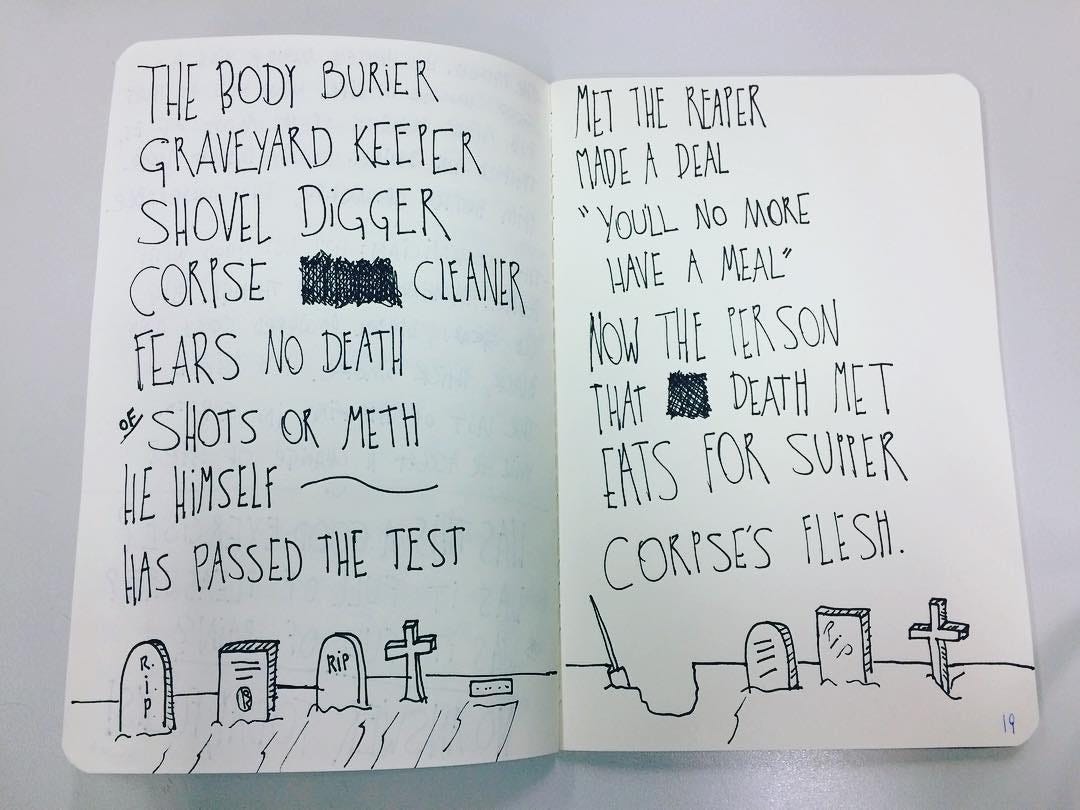 THE BODY BURIER
GRAVEYARD KEEPER
SHOVEL DIGGER
CORPSE CLEANER
FEARS NO DEATH
OF SHOTS OR METH
HE HIMSELF
HAS PASSED THE TEST
R.I.P
RIP
MET THE REAPER
MADE A DEAL
"YOU'LL NO MORE
HAVE A MEAL"
NOW THE PERSON
THAT DEATH MET
EATS FOR SUPPER
CORPSE'S FLESH.
R.I.P
19